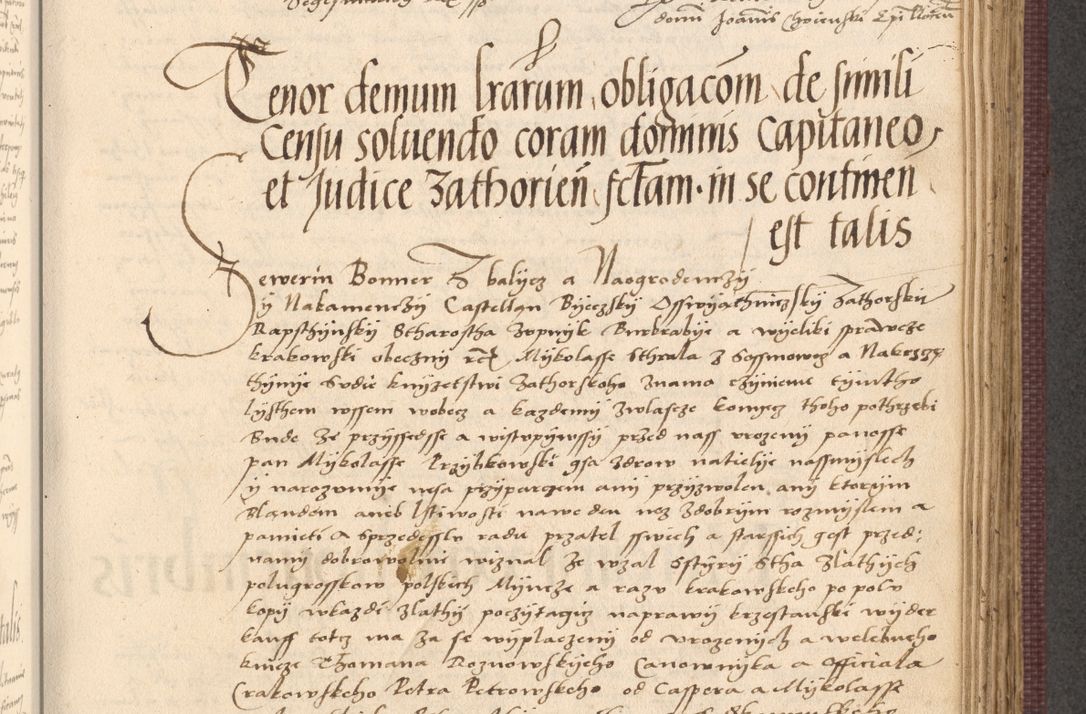 domini Joannis
Tenor demum lrarum obligacom de simili
Censu soluendo coram dominis Capitaneo
et Judice Zathorien fctam in se continen
est talis
Sewerin Bonner z balycz a Naogrodenczy
y Nakamenczy Castellan Byeczsky Zathorsky
Rapsthynsky Scharostha Zupnyk Burkrabye a wyeliki sprawcze
krakowski obeczny Mykolasse Sthrala z Sossnowcz a
thymye Sudie knyzetstwi Zathorskoho znamo czynieme tymtho
lysthem wssem wobecz a kazdemu zwlascze komucz thoho pothrzebi
Bude ze przyssedsse a wistupywssy przed nass urozeny panosse
pan Mykolasse Przybkowski gsa zdrow natielye nassmyslech
y narozumye nesa przypraczem any przyzwolen any ktorym
Blandem aneb lstiwosti naweden noz zdobrym rozmyslem a
pamieti a radu przatel swech a starssich gest przed
namy dobrowolnie wiznal ze wzal Sstyry Stha Zlathych
polugrosskow polskich Myncze a razu krakowskeho po polu
kopy wkazde zlathy poczytagicz naprawy krzestanski wyder
kauss totz ma za se wyplaczeny od urozenych a welebneho
knieze Thomana Roznowskyeho Canownyka a Officiala
Crakowskeho Petra Petrowskeho od Caspera a Mykolasse